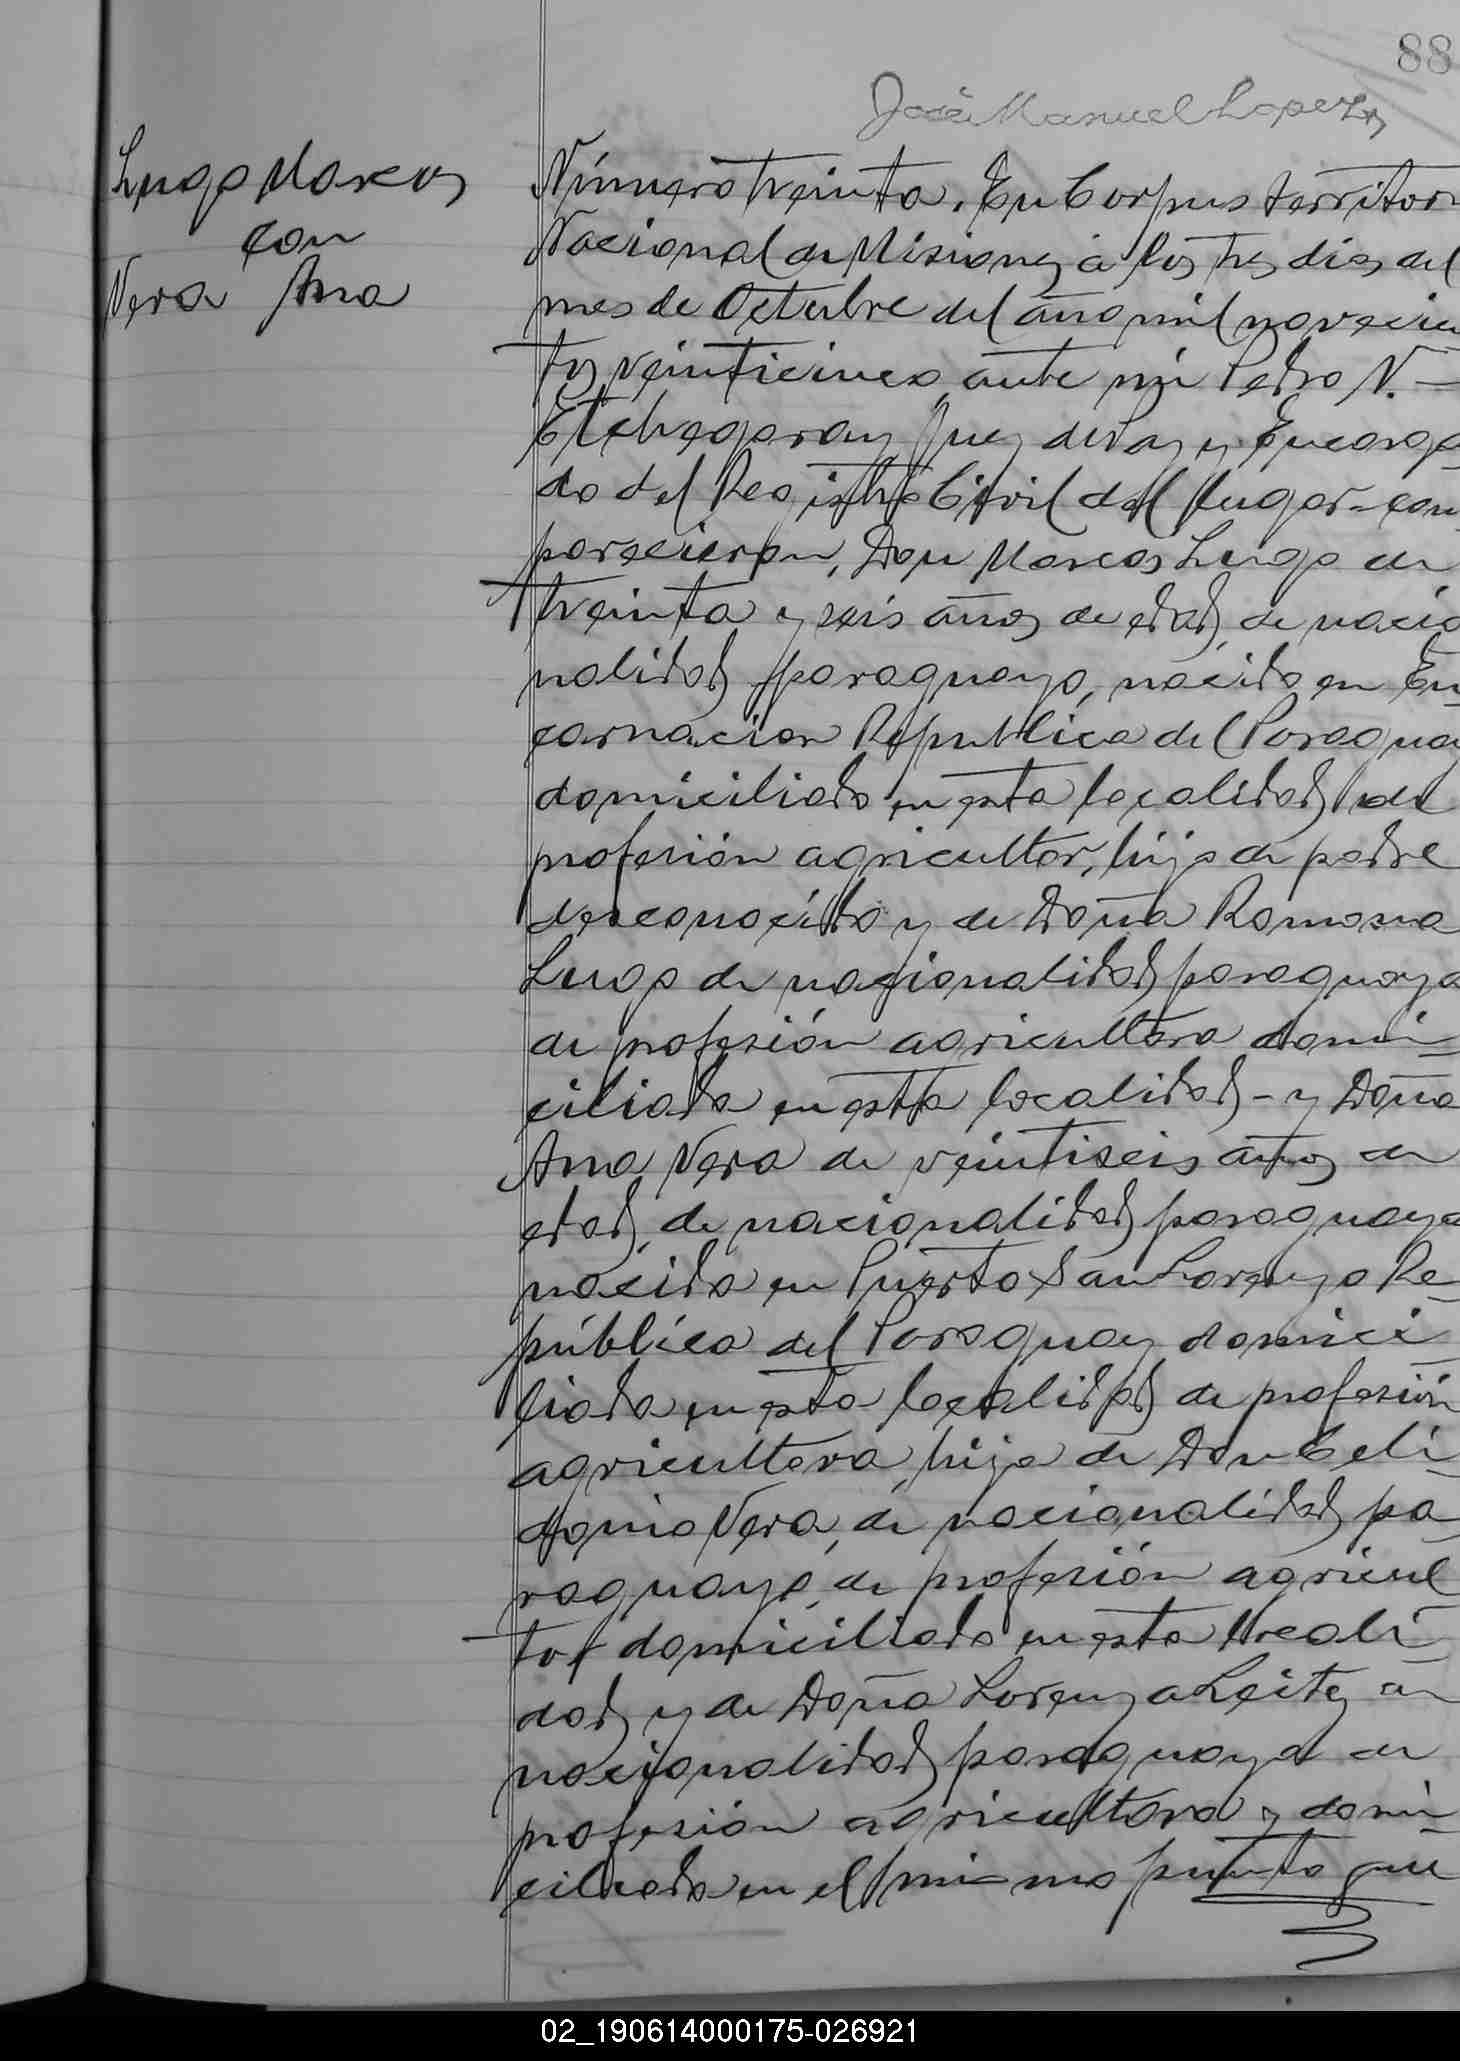 88
José Manuel Lopez
Lugo Marcos
con
Vera Ana
Número treinta. En Corpus territor
Nacional de Misiones á los tres dias del
mes de Octubre del año mil novecien
tos veinticinco, ante mi Pedro N. —
Etchegaray Juez de Paz y Encarga
do del Registro Civil del lugar - com
parecieron, Don Marcos Lugo de
treinta y seis años de edad, de nacio
nalidad paraguayo, nacido en En
carnacion República del Paraguay
domiciliado en esta localidad de
profesión agricultor, hijo de padre
desconocido y de Doña Ramona
Lugo de nacionalidad paraguaya
de profesión agricultora domi-
ciliada en esta localidad - y Doña
Ana Vera de veintiseis años de
edad, de nacionalidad paraguaya
nacida en Puerto San Lorenzo Re-
pública del Paraguay domici-
liada en esta localidad de profesión
agricultora, hija de Don Celi-
donio Vera, de nacionalidad pa-
raguayo, de profesión agricul
tor domiciliado en esta locali-
dad y de Doña Lorenza Leite, de
nacionalidad paraguaya de
profesión agricultora y domi-
ciliada en el mismo punto que
02_190614000175-026921